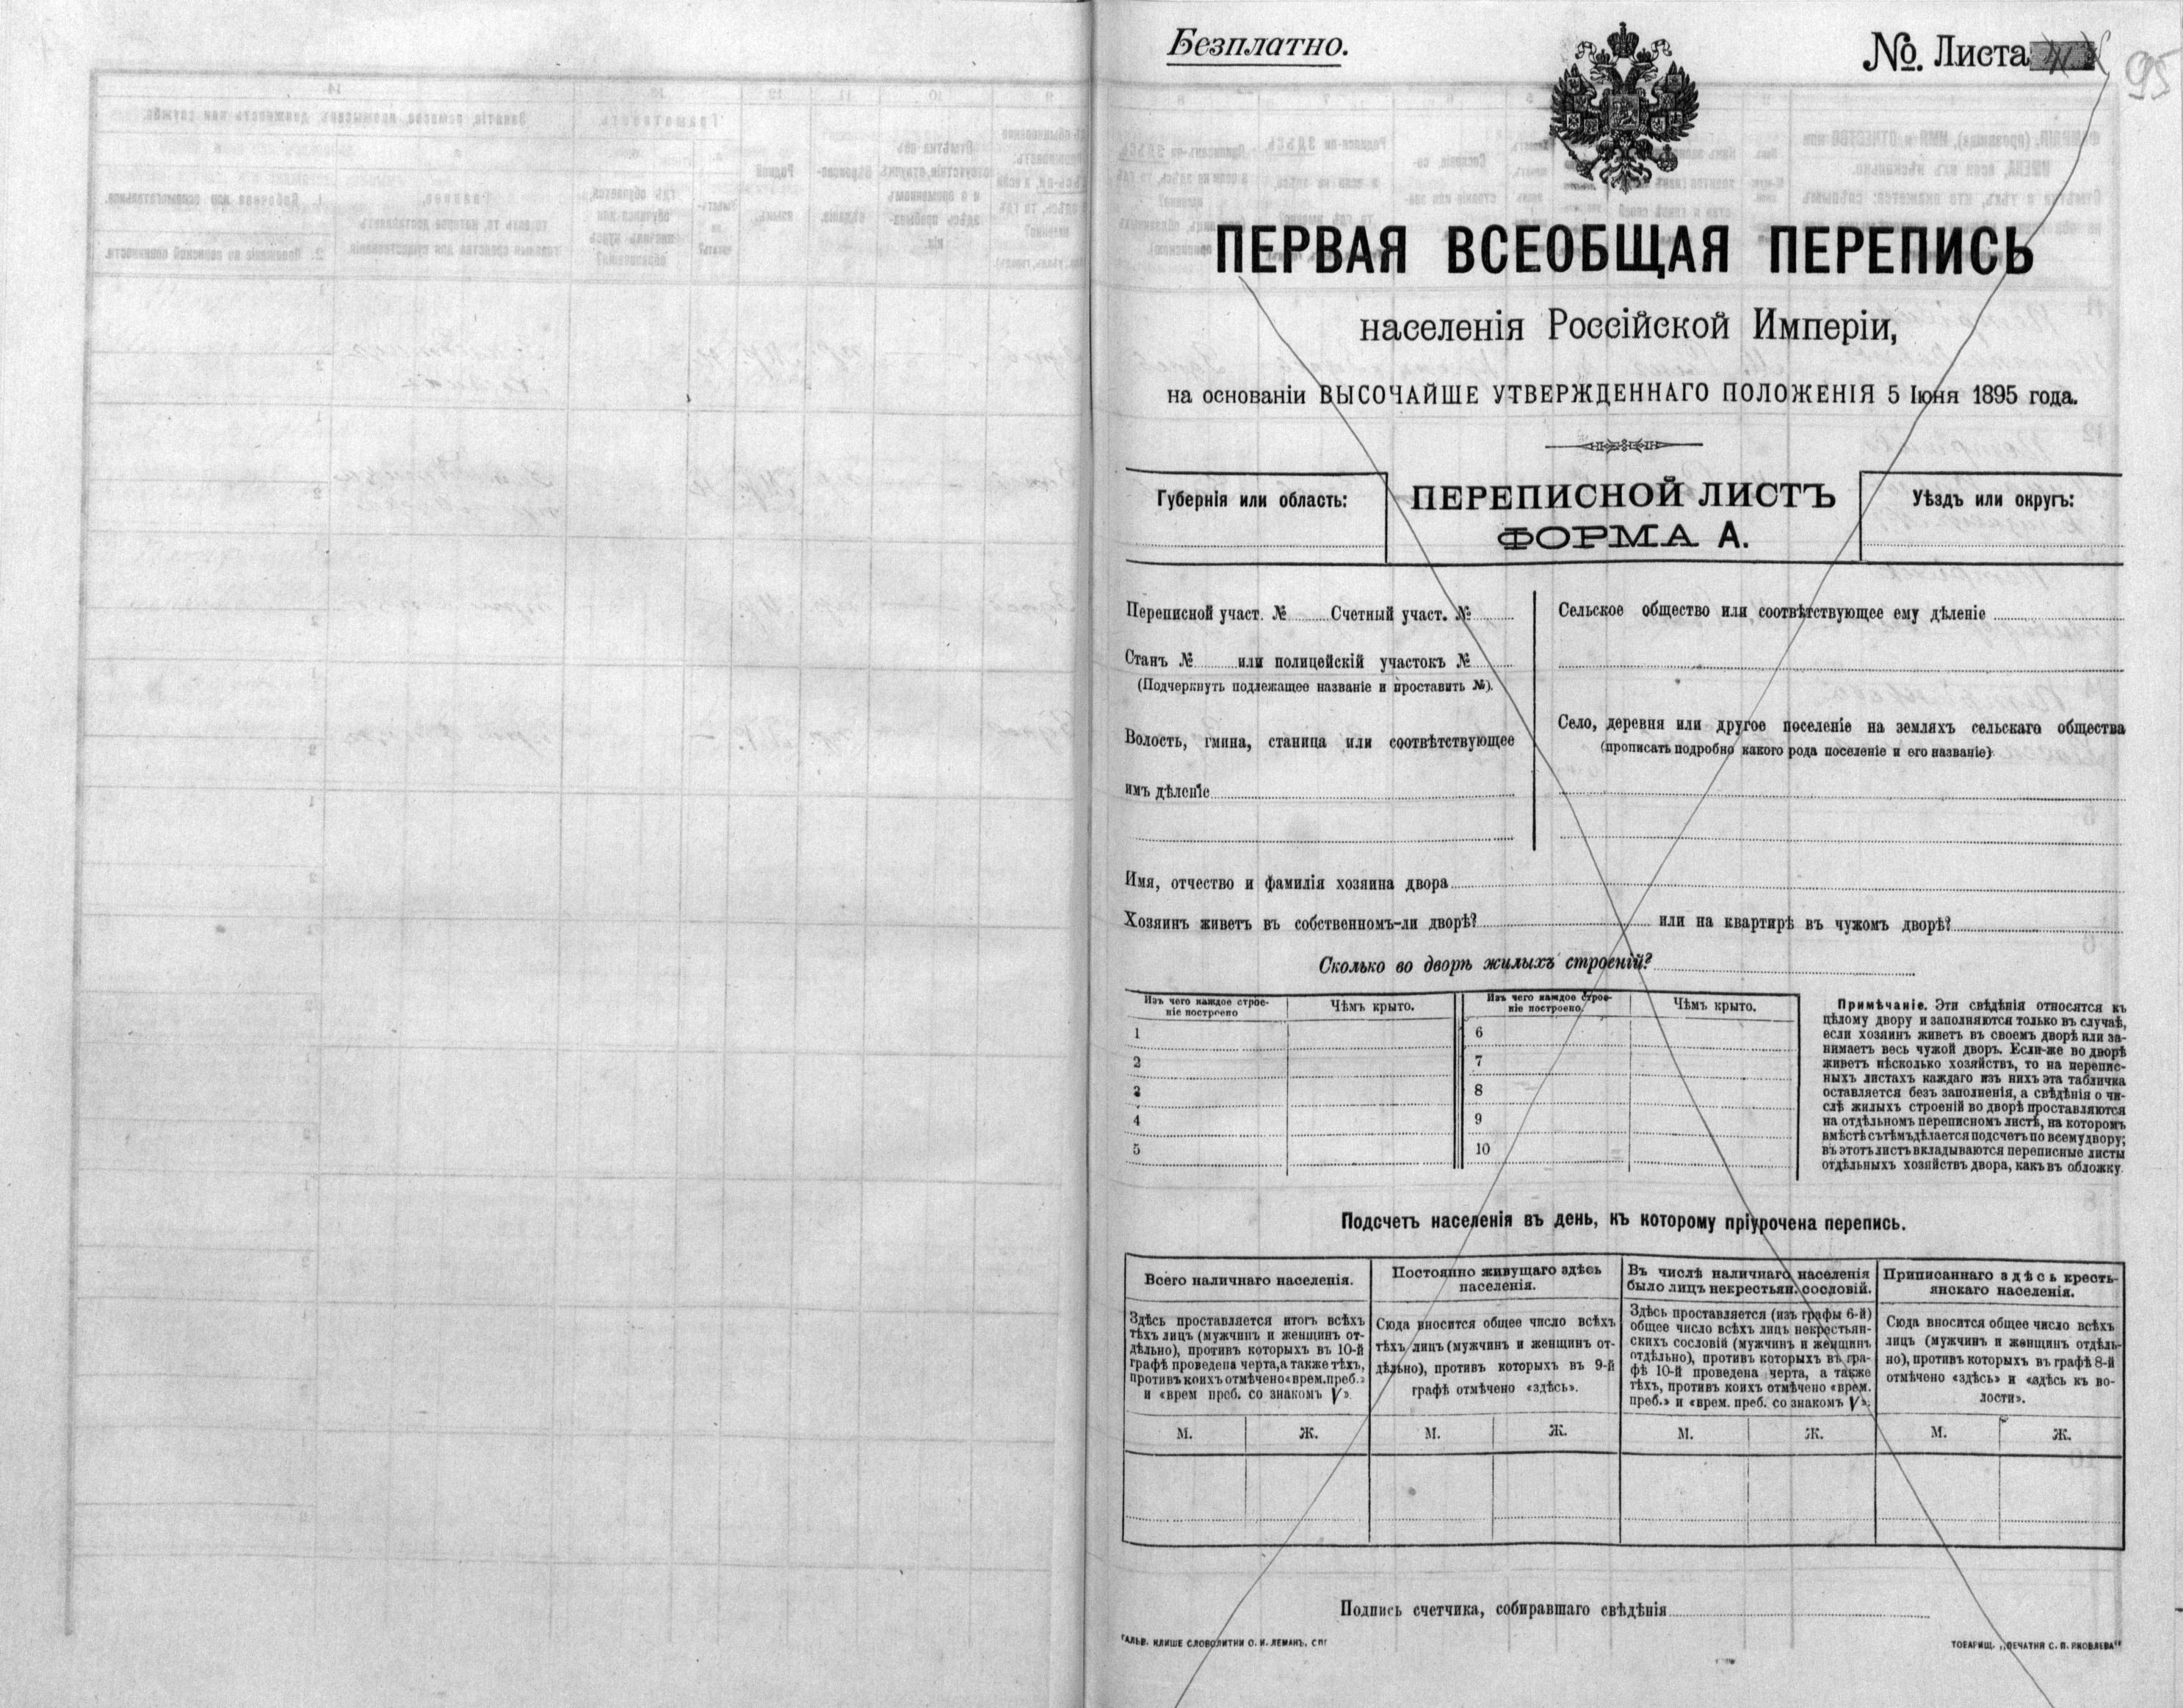 Безплатно.
№. Листа
95
ПЕРВАЯ ВСЕОБЩАЯ ПЕРЕПИСЬ
населенія Россійской Имперіи,
на основаніи ВЫСОЧАЙШЕ УТВЕРЖДЕННАГО ПОЛОЖЕНІЯ 5 Іюня 1895 года.
Губернія или область:
ПЕРЕПИСНОЙ ЛИСТЪ
ФОРМА А.
Уѣздъ или округъ:
Переписной участ. № Счетный участ. №
Станъ № или полицейскій участокъ №
(Подчеркнуть подлежащее названіе и проставить №).
Волость, гмина, станица или соотвѣтствующее
имъ дѣленіе
Сельское общество или соотвѣтствующее ему дѣленіе
Село, деревня или другое поселеніе на земляхъ сельскаго общества
(прописать подробно какого рода поселеніе и его названіе)
Имя, отчество и фамилія хозяина двора
Хозяинъ живетъ въ собственномъ-ли дворѣ? или на квартирѣ въ чужомъ дворѣ?
Сколько во дворѣ жилыхъ строеній?
Изъ чего каждое строе-
ніе построено
Чѣмъ крыто.
Изъ чего каждое строе-
ніе построено.
Чѣмъ крыто.
1
2
3
4
5
6
7
8
9
10
Примѣчаніе. Эти свѣдѣнія относятся къ
цѣлому двору и заполняются только въ случаѣ,
если хозяинъ живетъ въ своемъ дворѣ или за-
нимаетъ весь чужой дворъ. Если-же во дворѣ
живетъ нѣсколько хозяйствъ, то на перепис-
ныхъ листахъ каждаго изъ нихъ эта табличка
оставляется безъ заполненія, а свѣдѣнія о чи-
слѣ жилыхъ строеній во дворѣ проставляются
на отдѣльномъ переписномъ листѣ, на которомъ
вмѣстѣ съ тѣмъ дѣлается подсчетъ по всему двору;
въ этотъ листъ вкладываются переписные листы
отдѣльныхъ хозяйствъ двора, какъ въ обложку.
Подсчетъ населенія въ день, къ которому пріурочена перепись.
Всего наличнаго населенія.
Здѣсь проставляется итогъ всѣхъ
тѣхъ лицъ (мужчинъ и женщинъ от-
дѣльно), противъ которыхъ въ 10-й
графѣ проведена черта, а также тѣхъ,
противъ коихъ отмѣчено «врем. преб.»
и «врем преб. со знакомъ V».
М. Ж.
Постоянно живущаго здѣсь
населенія.
Сюда вносится общее число всѣхъ
тѣхъ лицъ (мужчинъ и женщинъ от-
дѣльно), противъ которыхъ въ 9-й
графѣ отмѣчено «здѣсь».
М. Ж.
Въ числѣ наличнаго населенія
было лицъ некрестьян. сословій.
Здѣсь проставляется (изъ графы 6-й)
общее число всѣхъ лицъ некрестьян-
скихъ сословій (мужчинъ и женщинъ
отдѣльно), противъ которыхъ въ гра-
фѣ 10-й проведена черта, а также
тѣхъ, противъ коихъ отмѣчено «врем.
преб.» и «врем. преб. со знакомъ V».
М. Ж.
Приписаннаго здѣсь кресть-
янскаго населенія.
Сюда вносится общее число всѣхъ
лицъ (мужчинъ и женщинъ отдѣль-
но), противъ которыхъ въ графѣ 8-й
отмѣчено «здѣсь» и «здѣсь къ во-
лости».
М. Ж.
Подпись счетчика, собиравшаго свѣдѣнія
ГАЛЬВ. КЛИШЕ СЛОВОЛИТНИ О. И. ЛЕМАНЪ, СПГ
ТОВАРИЩ. „ПЕЧАТНЯ С. П. ЯКОВЛЕВА“